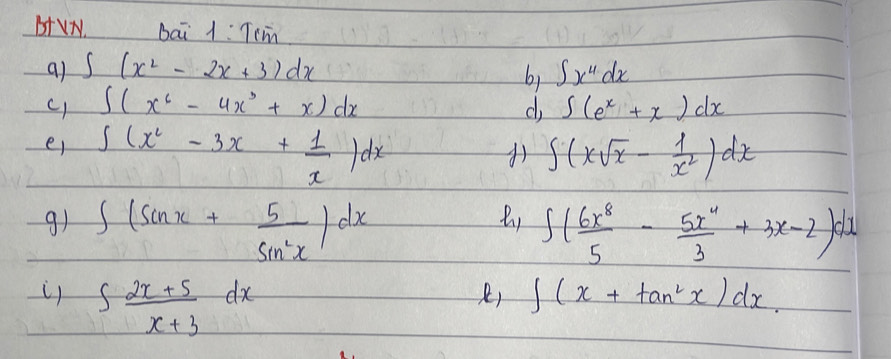 BTVN. Bài 1: Tìm
a) ∫ (x² - 2x + 3) dx b) ∫ x⁴ dx
c) ∫ ( x⁶ - 4x³ + x) dx d) ∫ (eˣ + x) dx
e) ∫ (x² - 3x + 1/x) dx f) ∫ (x√x - 1/x²) dx
g) ∫ (sin x + 5/sin²x) dx h) ∫ (6x⁸/5 - 5x⁴/3 + 3x - 2) dx
i) ∫ (2x + 5)/(x + 3) dx k) ∫ (x + tan²x) dx.